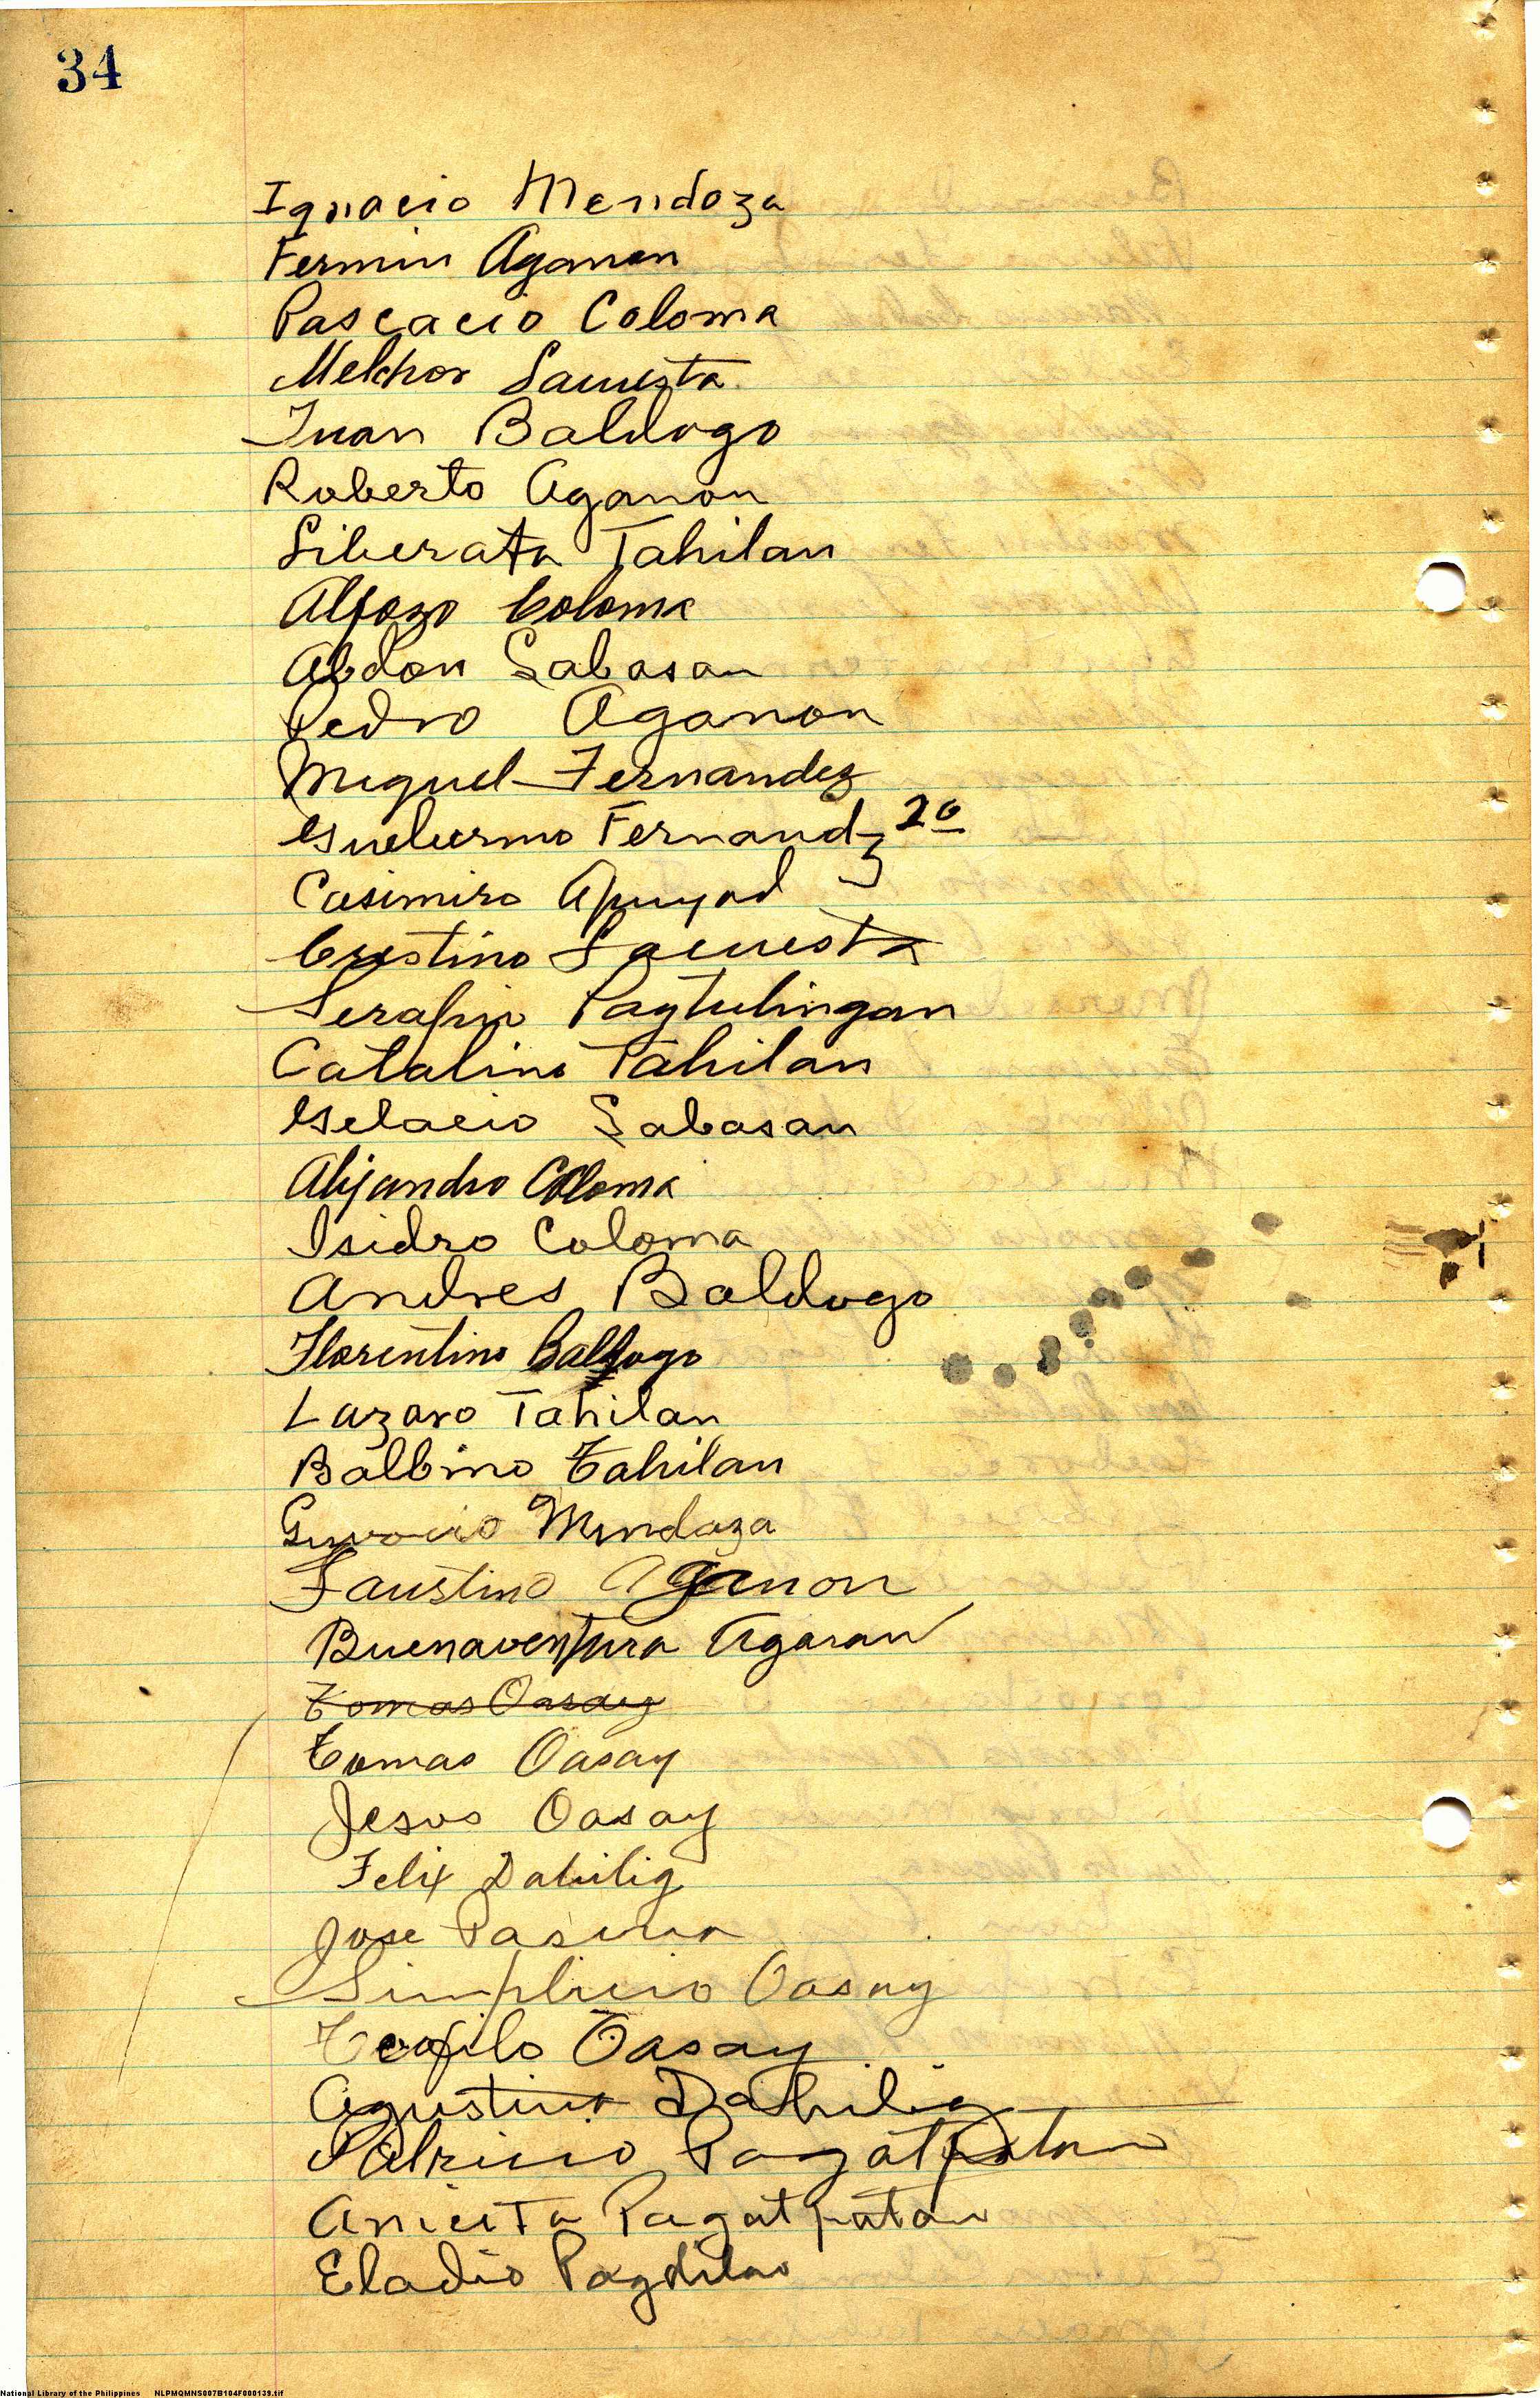 34
Ignacio Mendoza
Fermin Aganon
Pascacio Coloma
Melchor Lacuesta
Juan Baldugo
Roberto Aganon
Liberata Tahilan
Alfozo Coloma
Abdon Labasan
Pedro Aganon
Miguel Fernandez
Guelermo Fernandz 2o
Casimiro Apuyod
Crestino Lacuesta
Serafin Pagtulingan
Catalino Tahilan
Gelacio Labasan
Alijandro Coloma
Isidro Coloma
Andres Baldugo
Florentino Baldugo
Lazaro Tahilan
Balbino Tahilan
Mendoza
Faustino Aganon
Buenaventura Agaran
Tomas Oasay
Tomas Oasay
Jesus Oasay
Felix Dahilig
Jose Pascua
Simplicio Oasay
Teofilo Oasay
Agustino Dahilig
Patricio Pagatpatan
Anicita Pagatpatan
Eladio Pagdilao
National Library of the Philippines NLPMQMNS007B104F000139.tif